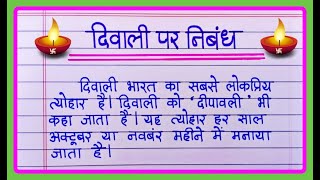 दिवाली पर निबंध
दिवाली भारत का सबसे लोकप्रिय
त्योहार हैं। दिवाली को 'दीपावली' भी
कहा जाता हैं। यह त्योहार हर साल
अक्टूबर या नवबंर महीने में मनाया
जाता हैं।